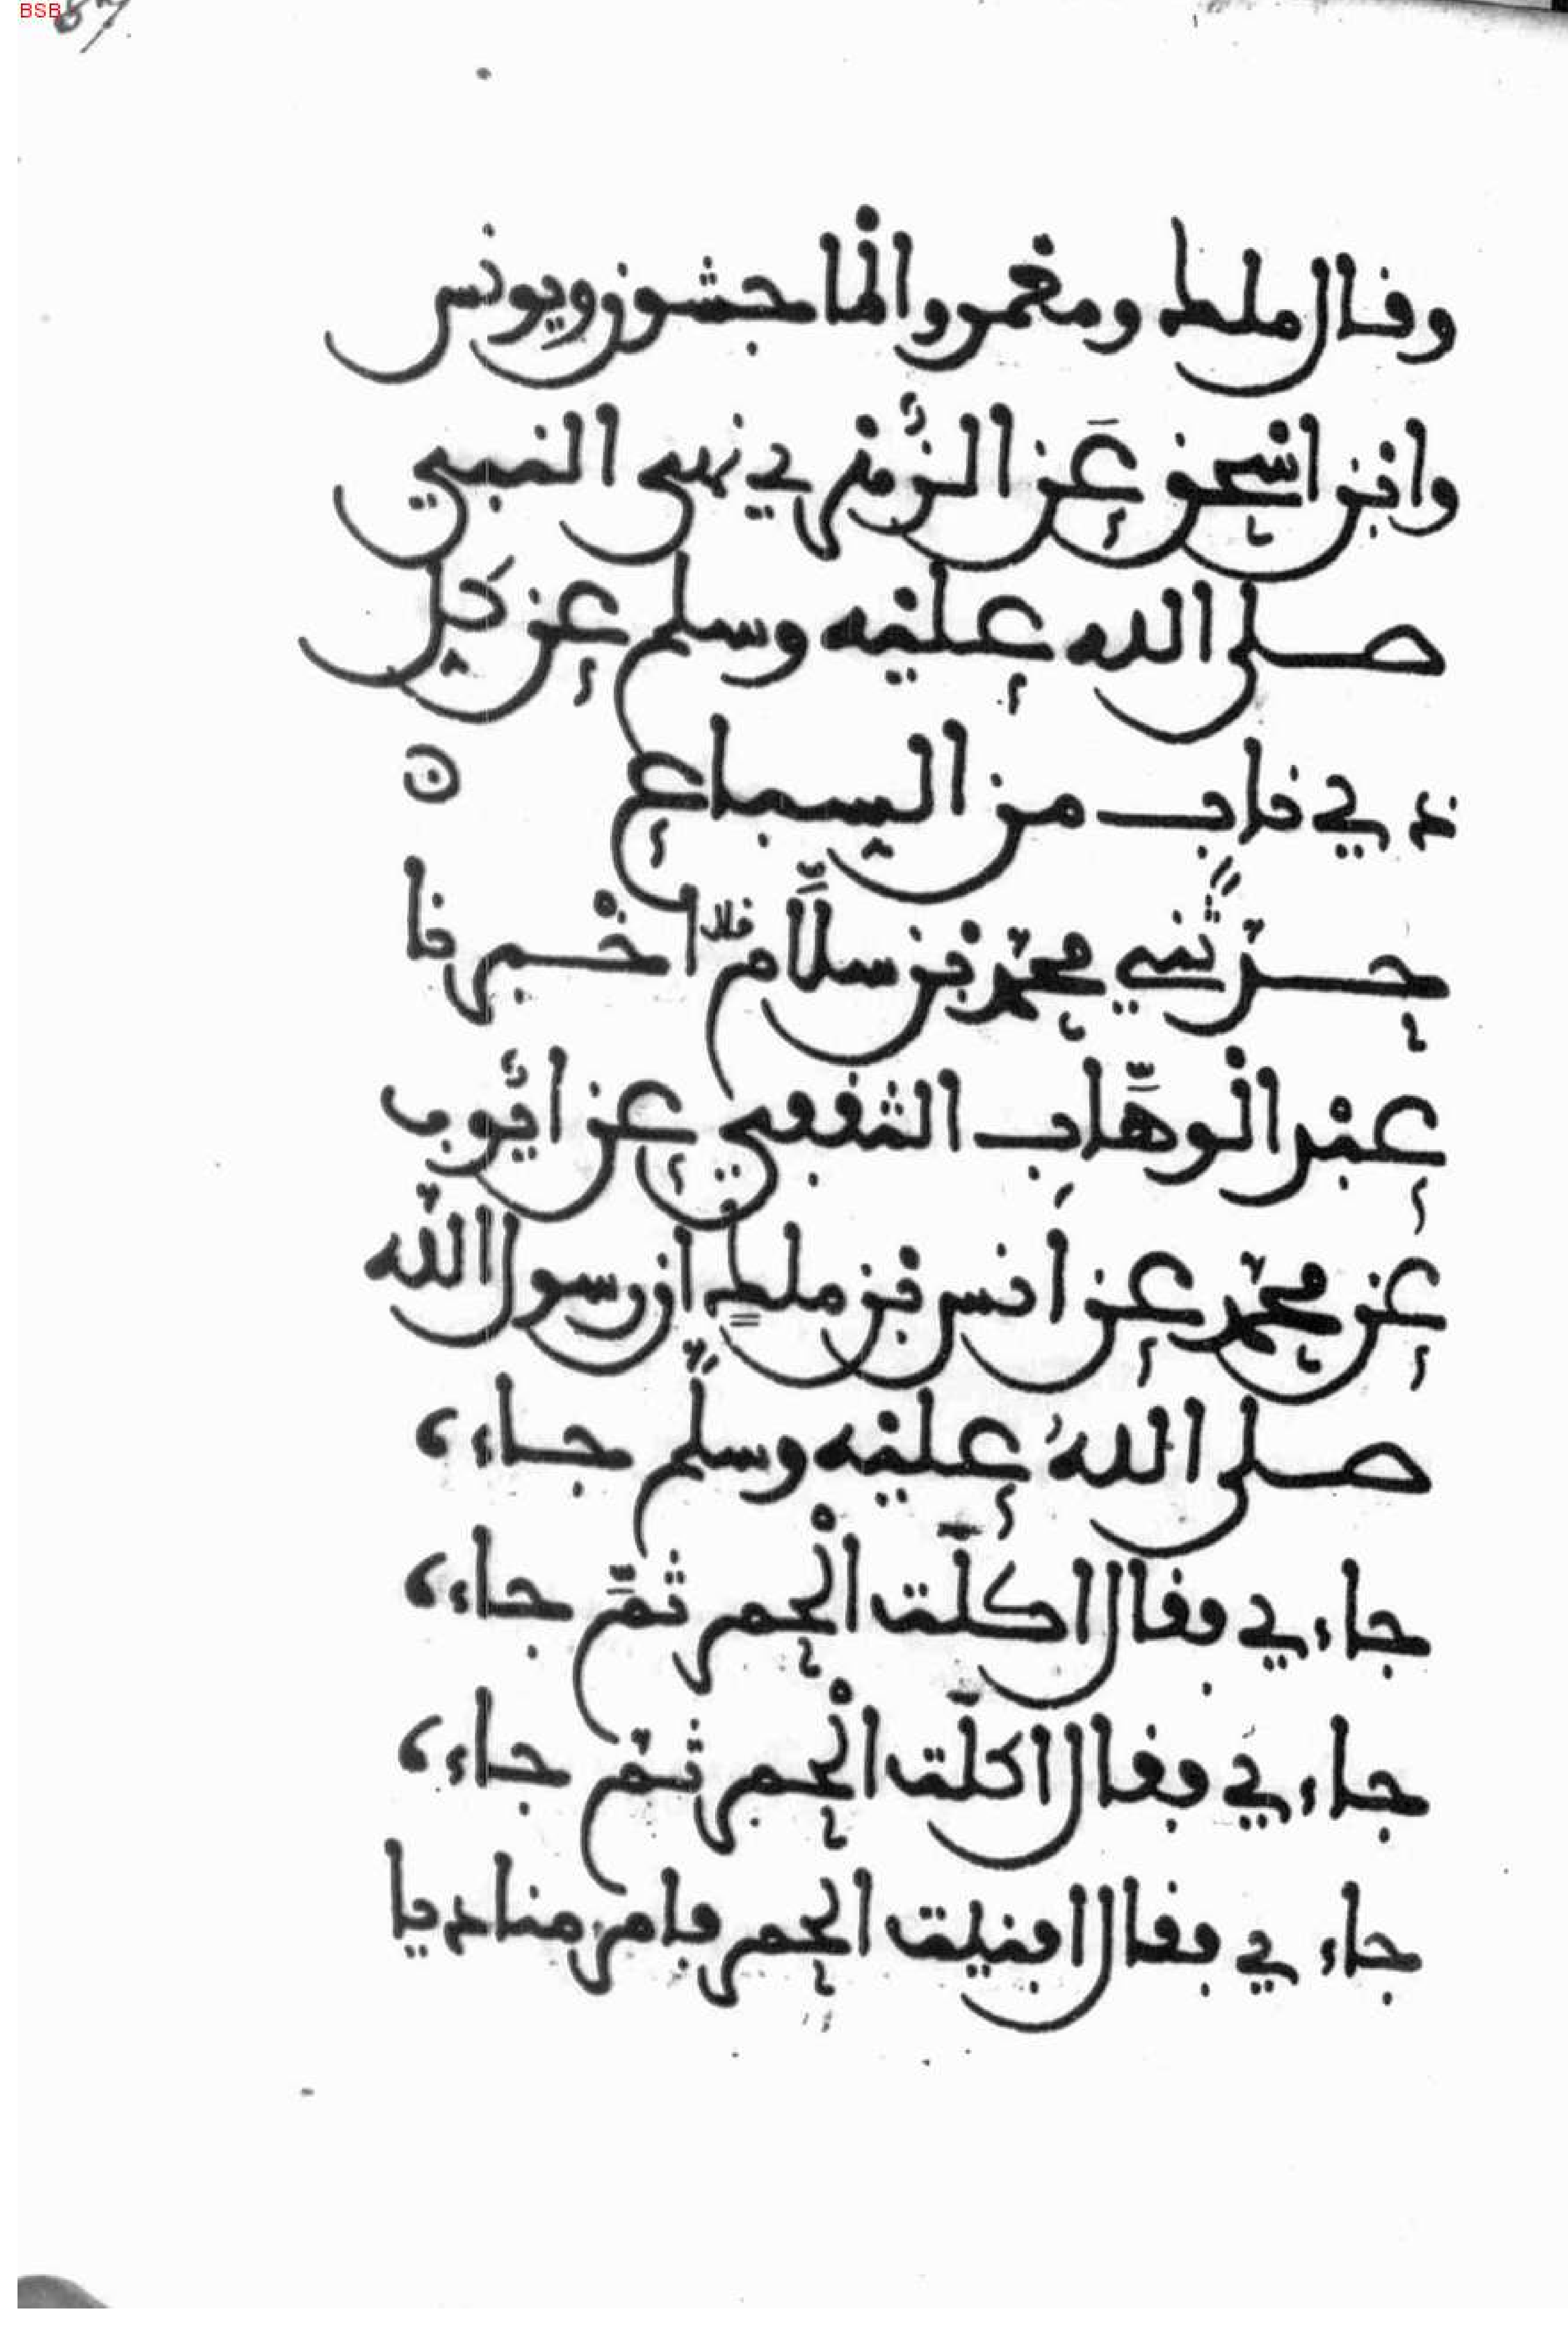 BSB
وقال ملك ومعمر والماجشون ويونس
وابن اسحق عن الزهري نهى النبي
صلى الله عليه وسلم عن كل
ذي ناب من السباع
حدثني محمد بن سلام قال اخبرنا
عبد الوهاب الثقفي عن ايوب
عن محمد عن انس بن ملك ان رسول الله
صلى الله عليه وسلم جاءه
جاءي فقال اكلت الحمر ثم جاءه
جاءي فقال اكلت الحمر ثم جاءه
جاءي فقال افنيت الحمر فامر مناديا